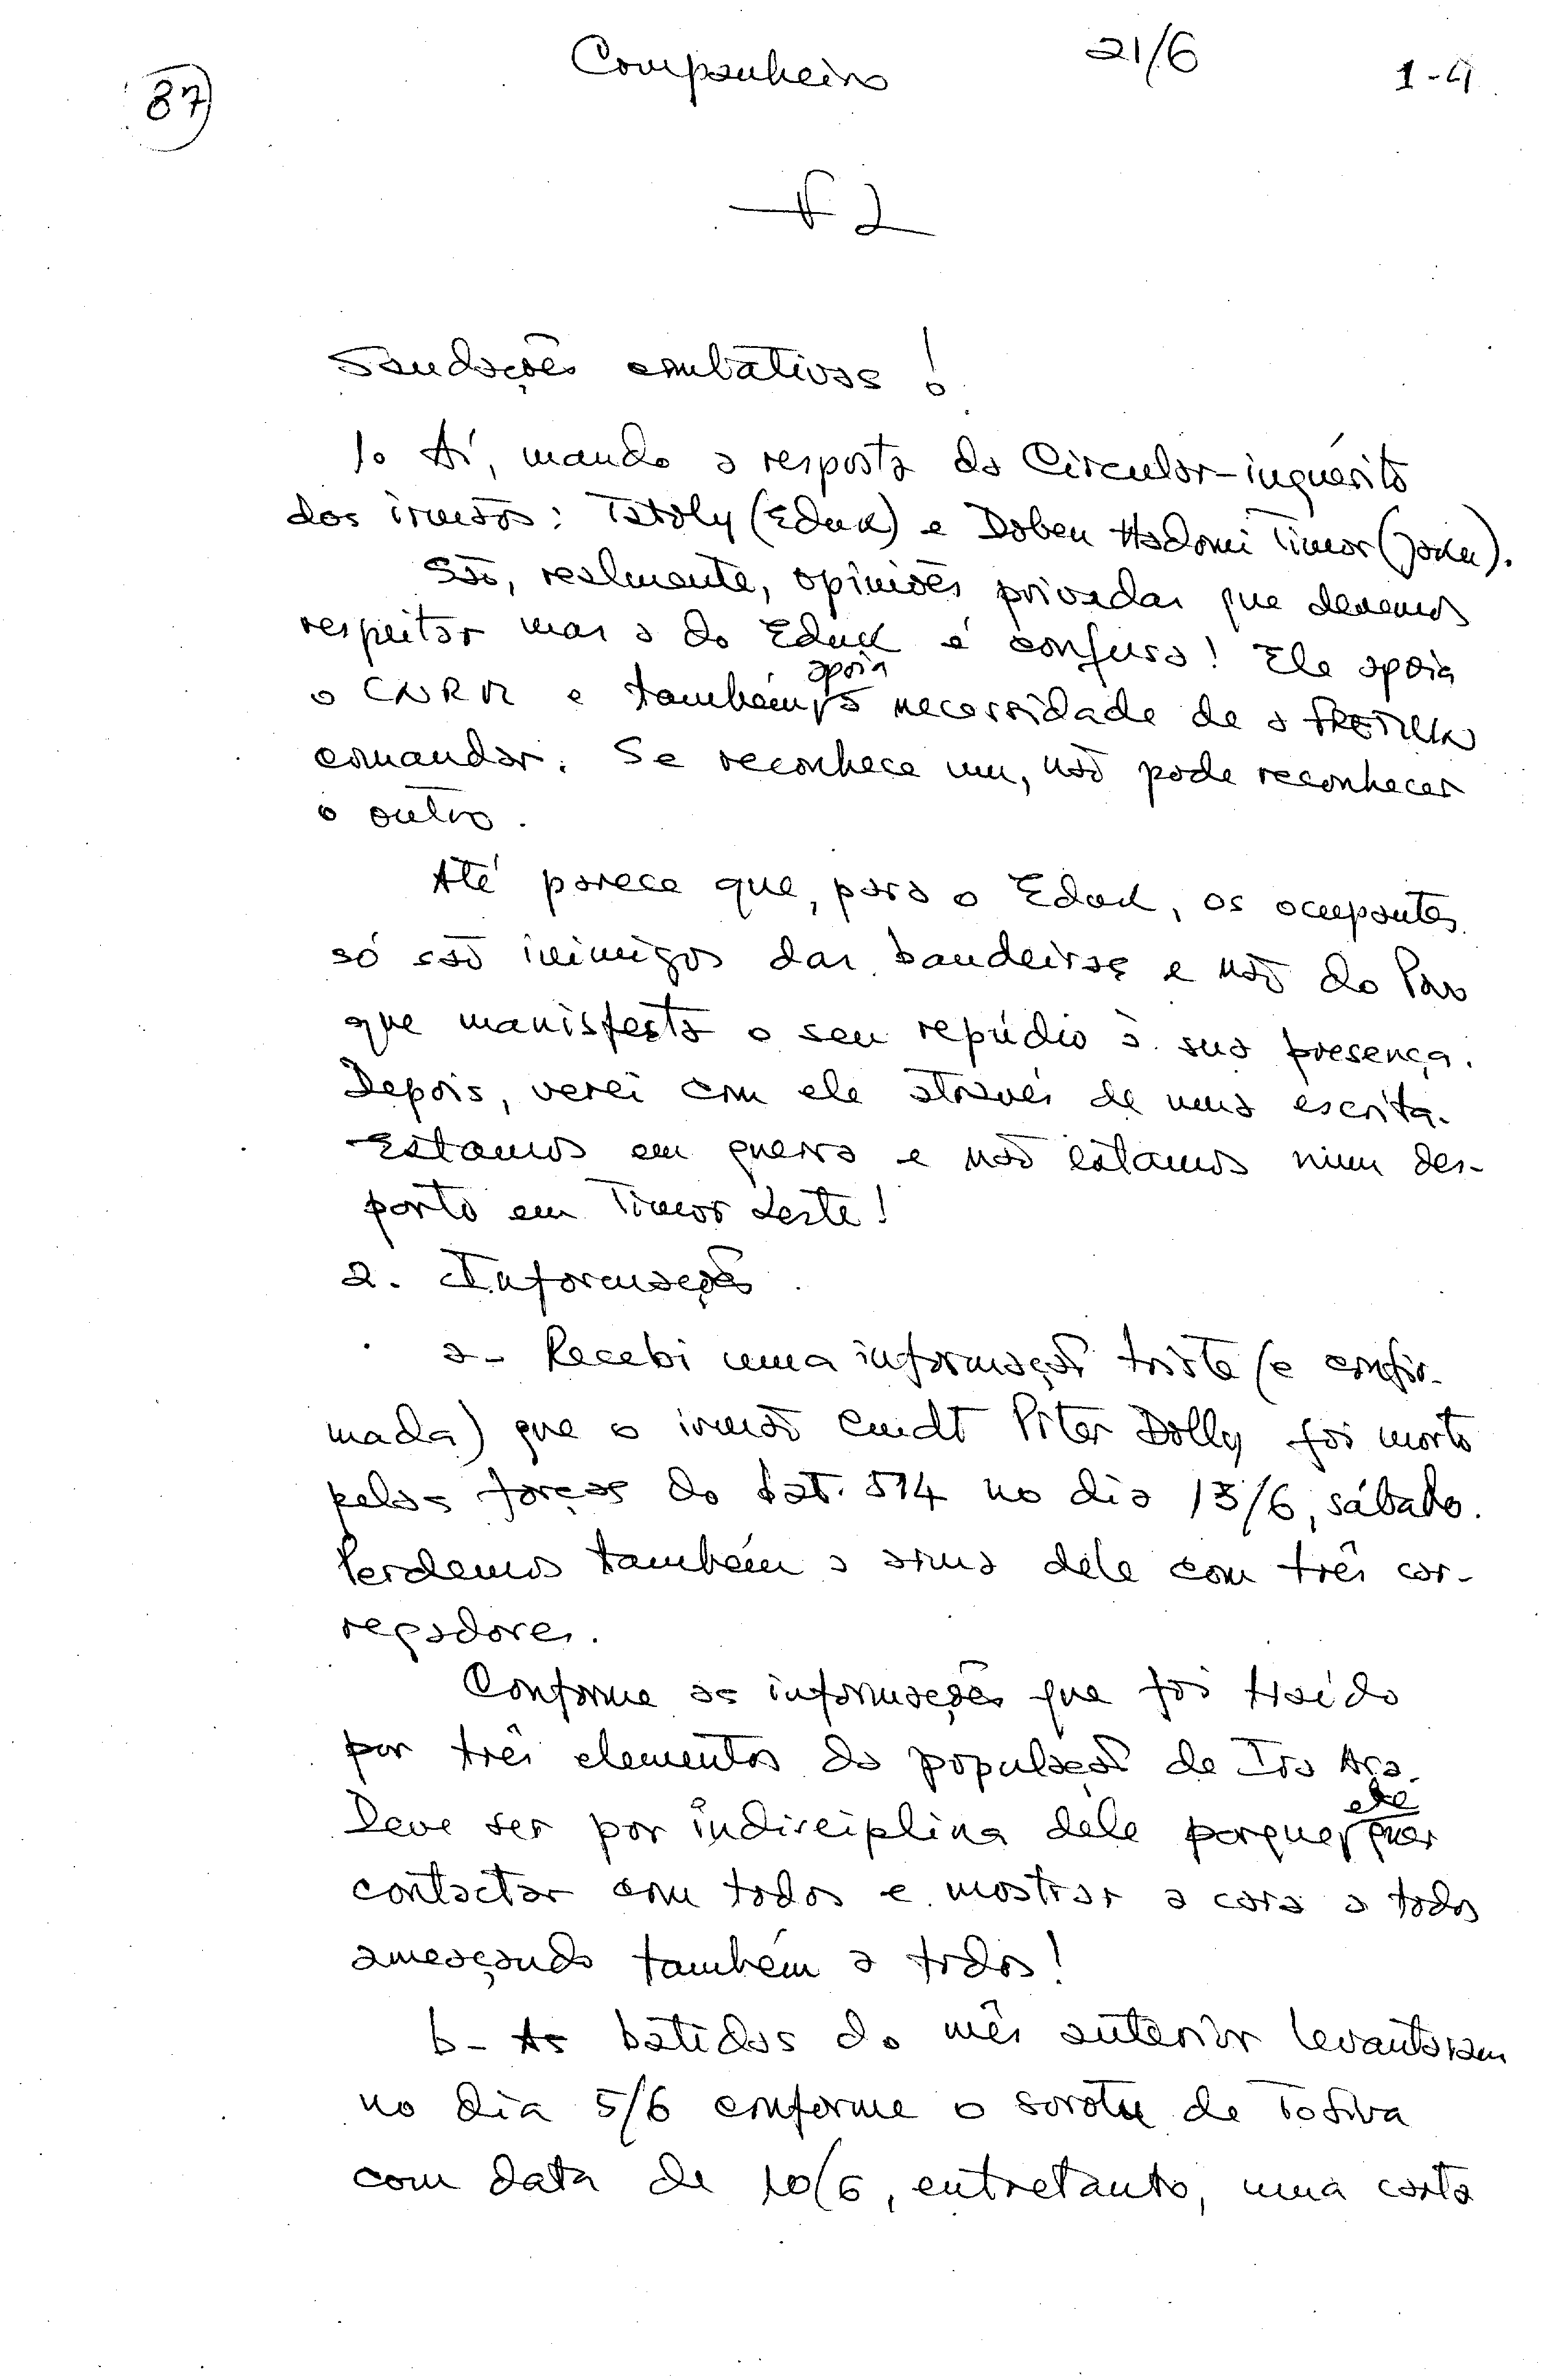 87
Companheiro 21/6 1-4
Saudações combativas!
1. Aí, mando a resposta da Circular-inquérito
dos irmãos: Tatoly (Eduk) e Doben Hadomi Timor
São, realmente, opiniões privadas que devemos
respeitar mas a do Eduk é confusa! Ele apoia
o CNRM e também apoia a necessidade de a FRETILIN
comandar. Se reconhece um, não pode reconhecer
o outro.
Até parece que, para o Eduk, os ocupantes
só são inimigos das bandeiras e não do Povo
que manisfesta o seu repúdio à sua presença.
Depois, verei com ele através de uma escrita.
Estamos em guerra e não estamos num des-
porto em Timor Leste!
2. Informações
a- Recebi uma informação triste (e confir-
mada) que o irmão Cmdt Piter Dolly foi morto
pelas forças do bat. 514 no dia 13/6, sábado.
Perdemos também a arma dele com três car-
regadores.
Conforme as informações que foi traído
por três elementos da população de Ira Ara.
Deve ser por indisciplina dele porque ele quer
contactar com todos e mostrar a cara a todos
ameaçando também a todos!
b- As batidas do mês anterior levantaram
no dia 5/6 conforme o de
com data de 10/6, entretanto, uma carta